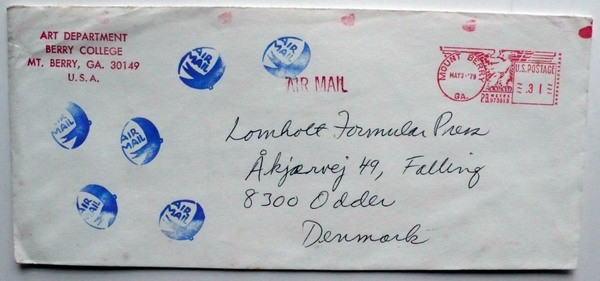 ART DEPARTMENT
BERRY COLLEGE
MT. BERRY, GA. 30149
U.S.A.
AIR MAIL
AIR MAIL
AIR MAIL
MOUNT BERRY
MAY3-'79
GA.
U.S. POSTAGE
.31
AIR MAIL
AIR MAIL
AIR MAIL
AIR MAIL
Lomholt Formular Press
Åkjærvej 49, Falling
8300 Odder
Denmark